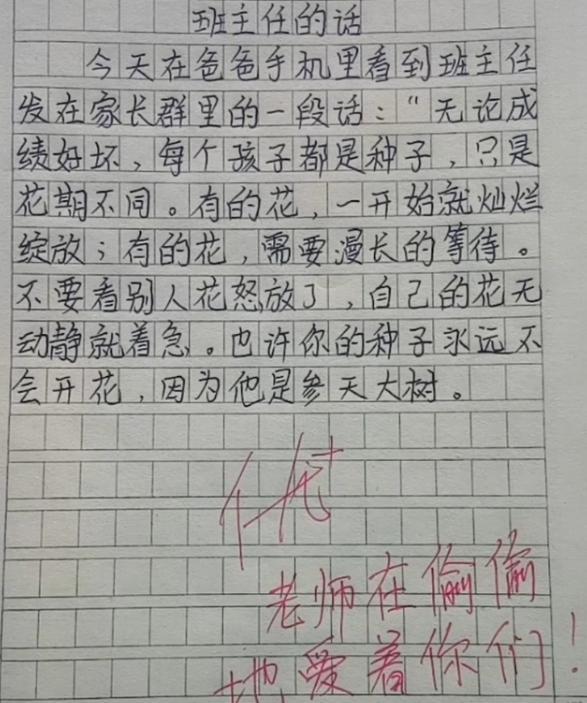 班主任的话
今天在爸爸手机里看到班主任
发在家长群里的一段话：“无论成
绩好坏，每个孩子都是种子，只是
花期不同。有的花，一开始就灿烂
绽放；有的花，需要漫长的等待。
不要看别人花怒放了，自己的花无
动静就着急。也许你的种子永远不
会开花，因为他是参天大树。
优+
老师在偷偷
地爱着你们！